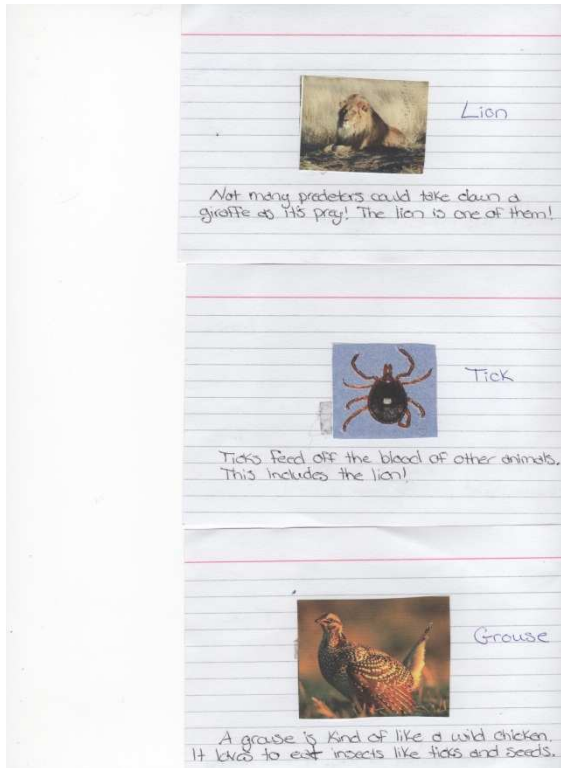 Lion
Not many predeters could take down a
giraffe as it's prey! The lion is one of them!
Tick
Ticks feed off the blood of other animals.
This includes the lion!
Grouse
A grouse is kind of like a wild chicken.
It loves to eat insects like ticks and seeds.